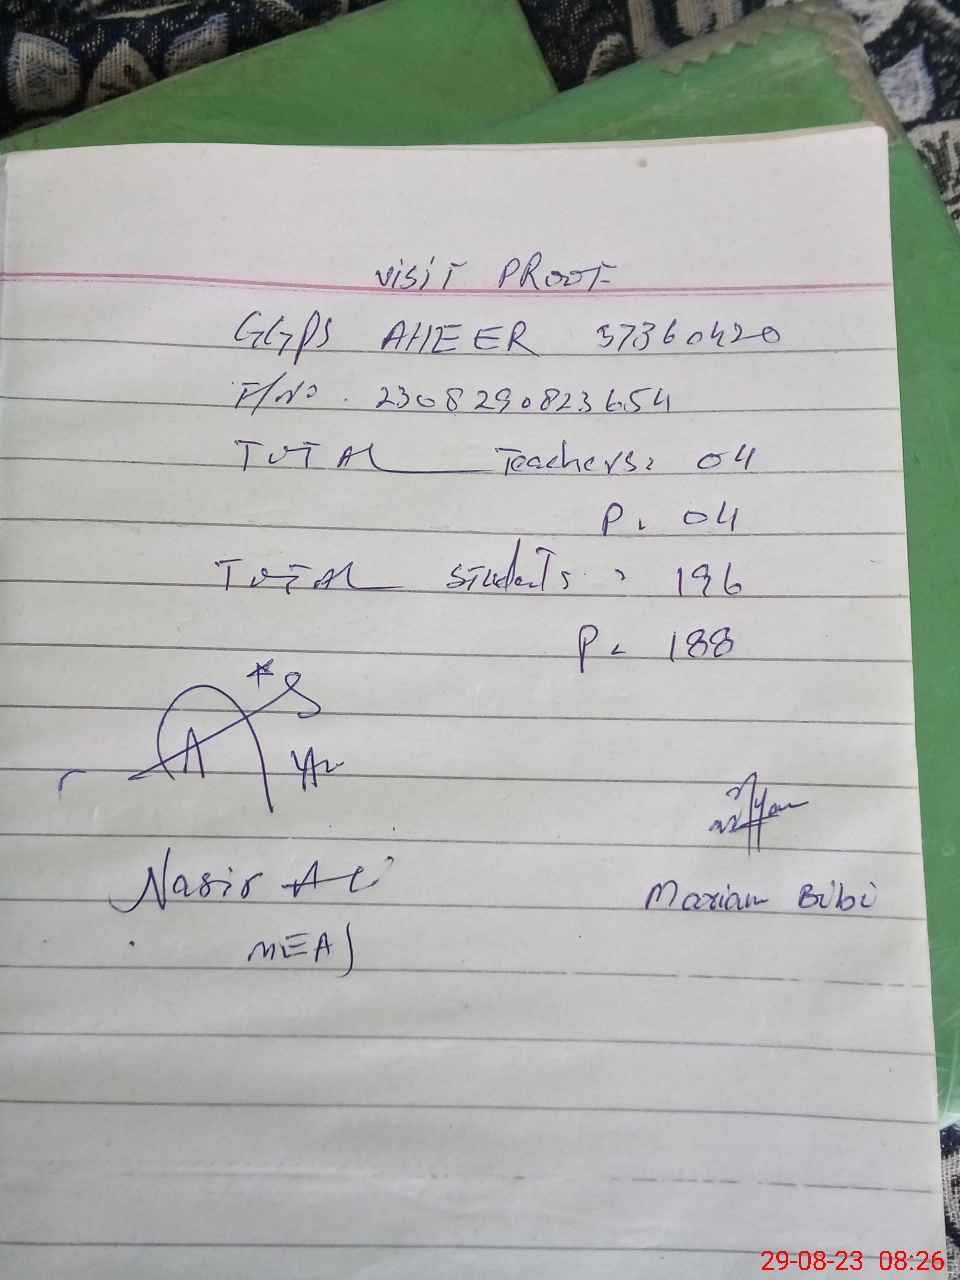 Visit PROOF
GGPS AHEER 37360420
F/No. 2308290823654
TOTAL Teachers: 04
P. 04
TOTAL Students: 196
P. 188
Nasir Ali
Mariam Bibi
MEA
29-08-23 08:26